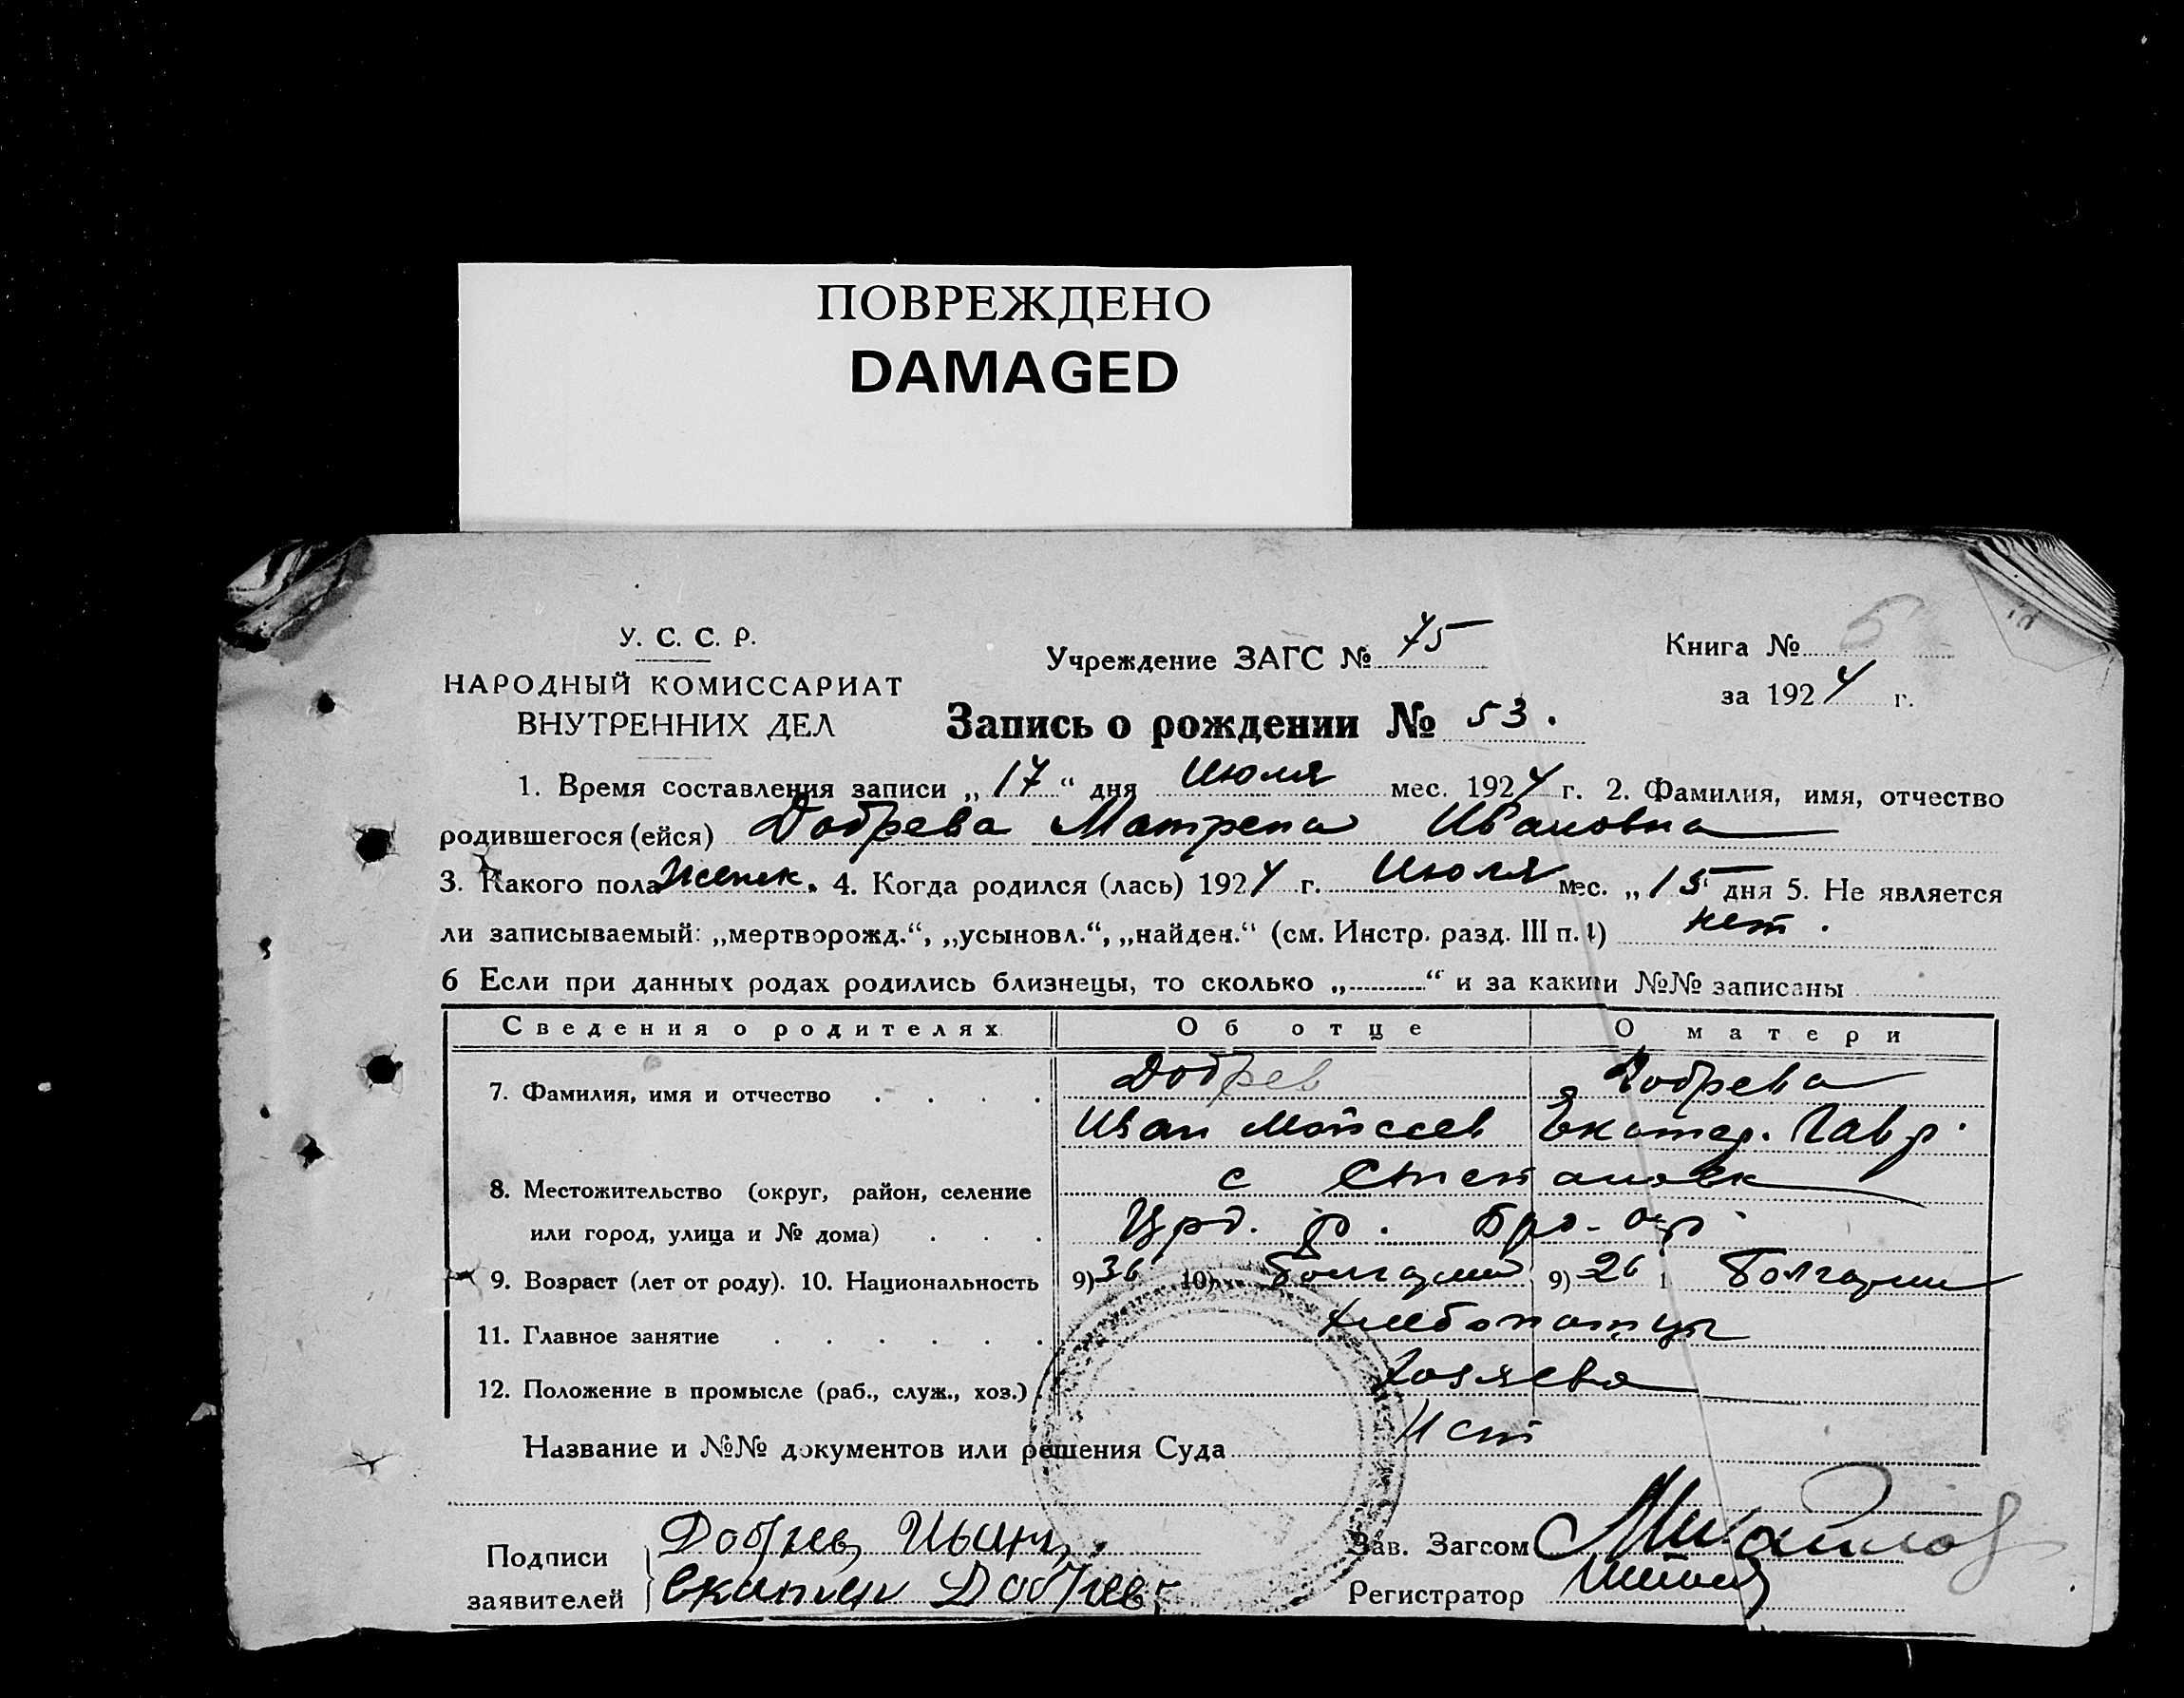 ПОВРЕЖДЕНО
DAMAGED
У. С. С. Р.
НАРОДНЫЙ КОМИССАРИАТ
ВНУТРЕННИХ ДЕЛ
Учреждение ЗАГС № 75
Книга № 6
за 1924 г.
Запись о рождении № 53.
1. Время составления записи „17“ дня Июля мес. 1924 г. 2. Фамилия, имя, отчество
родившегося (ейся) Добрева Матрена Ивановна
3. Какого пола Женск. 4. Когда родился (лась) 1924 г. Июля мес. „15 дня 5. Не является
ли записываемый: „мертворожд.“, „усыновл.“, „найден.“ (см. Инстр. разд. III п. 1) нет.
6 Если при данных родах родились близнецы, то сколько „ “ и за какими №№ записаны
Сведения о родителях Об отце О матери
7. Фамилия, имя и отчество Добрев Добрева
Иван Мойсеев Екатер. Гавр.
8. Местожительство (округ, район, селение с Степановк
или город, улица и № дома) р.
9. Возраст (лет от роду). 10. Национальность 9) 36 10) Болгарин 9) 26 1 Болгарин
11. Главное занятие Хлебопашцы
12. Положение в промысле (раб., служ., хоз.) Хозяева
Название и №№ документов или решения Суда Нет
Подписи заявителей Добрев Иван
Екатер Добрев
Зав. Загсом Михайлов
Регистратор